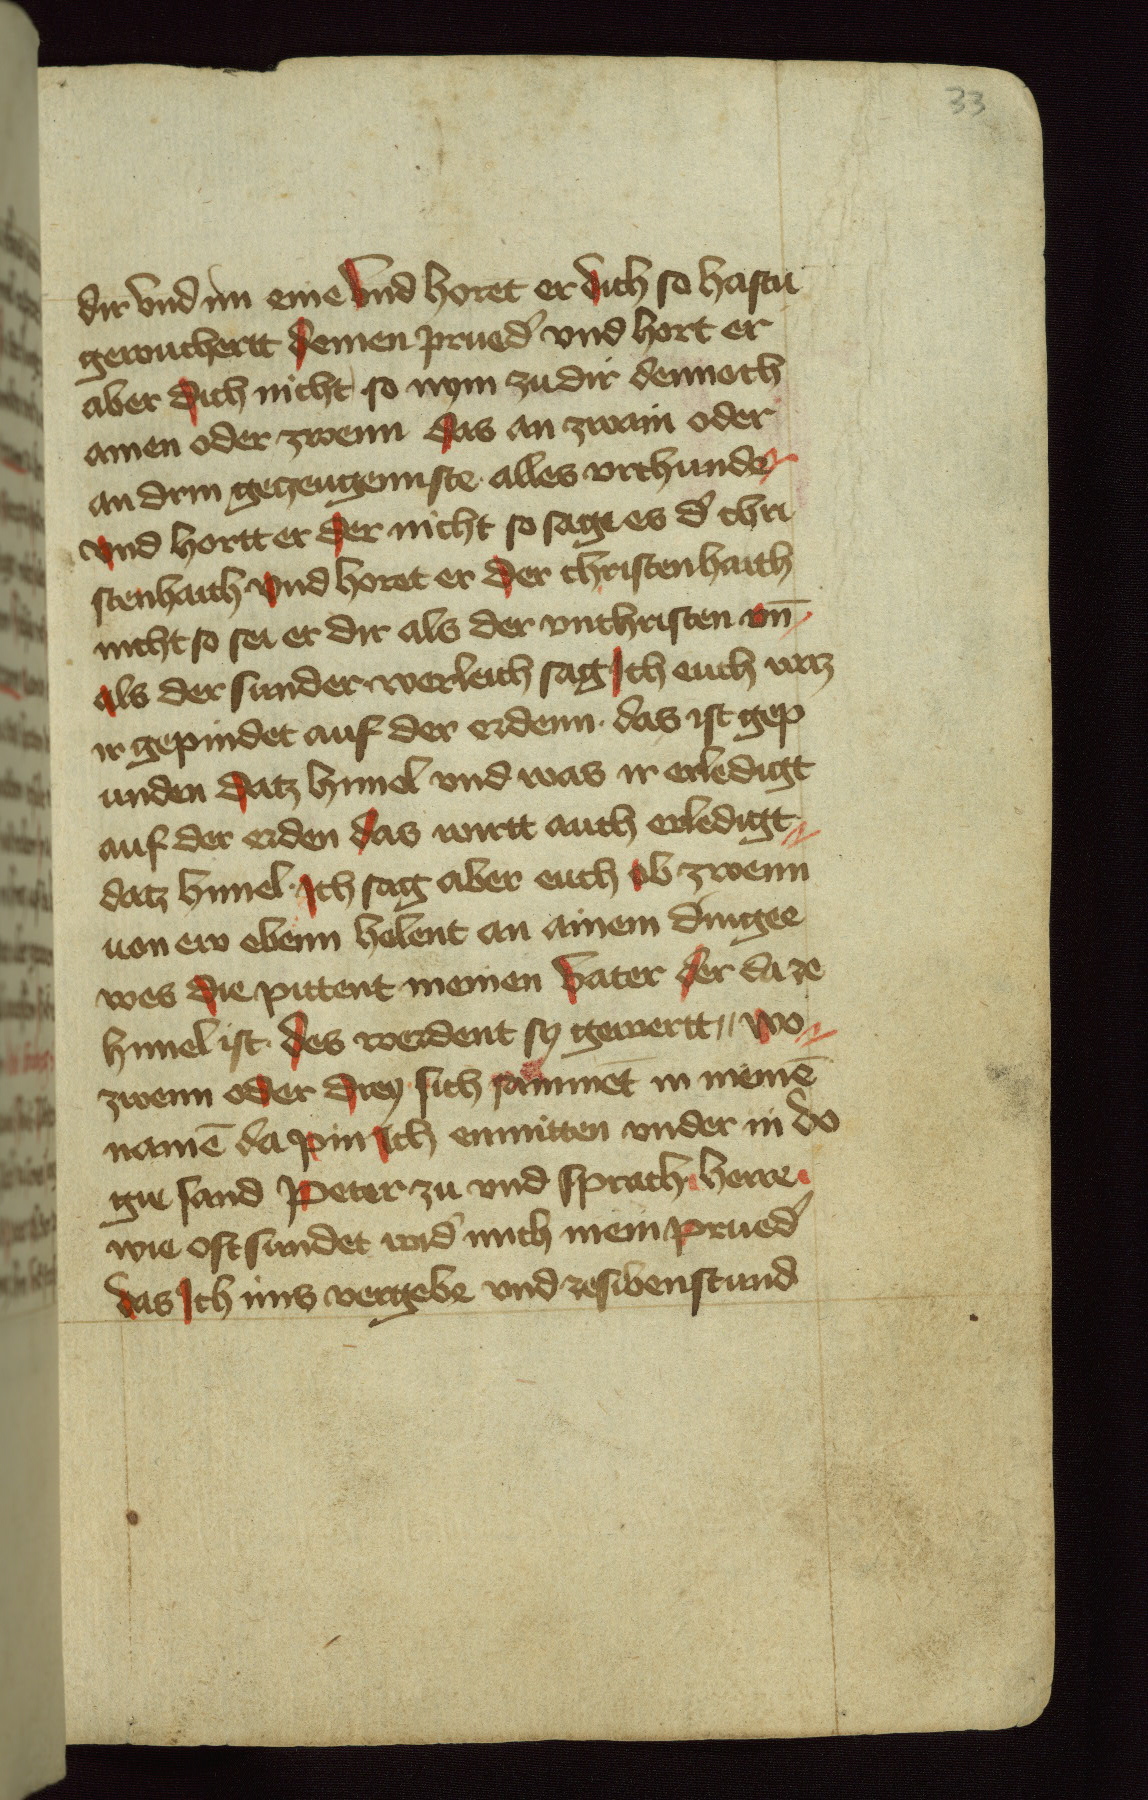 33
dir vnd im eine vnd horet er dich so hastu
gewuchertt deinen prued̉ vnd hort er
aber dich nicht so nym zu dir dennoch
ainen oder zwenn das an zwain oder
an drin geczeugennste alles vrchunde
vnd hortt er der nicht so sage es d̉ chri
stenhaith vnd horet er der christenhaith
nicht so sei er dir als der vnchristen vn̄
als der sunder werleich sag Ich euch waz
ir gepindet auf der erdenn · das ist gep
unden datz himel vnd was ir erledigt
auf der erden das wirtt auch erledigt
datz himel · Ich sag aber euch ob zwenn
uon ew ebenn helent an ainem dingee
wes die pittent meinen vater der da ze
himel ist · des werdent sy gewertt // wo
zwenn oder drey sich samment in meinē
namē da pin Ich enmitten vnder in do
gie sand Peter zu vnd sprach herre
wie oft sundet wid̉ mich mein prued̉
das Ich ims vergebe vnd ze sibenstund